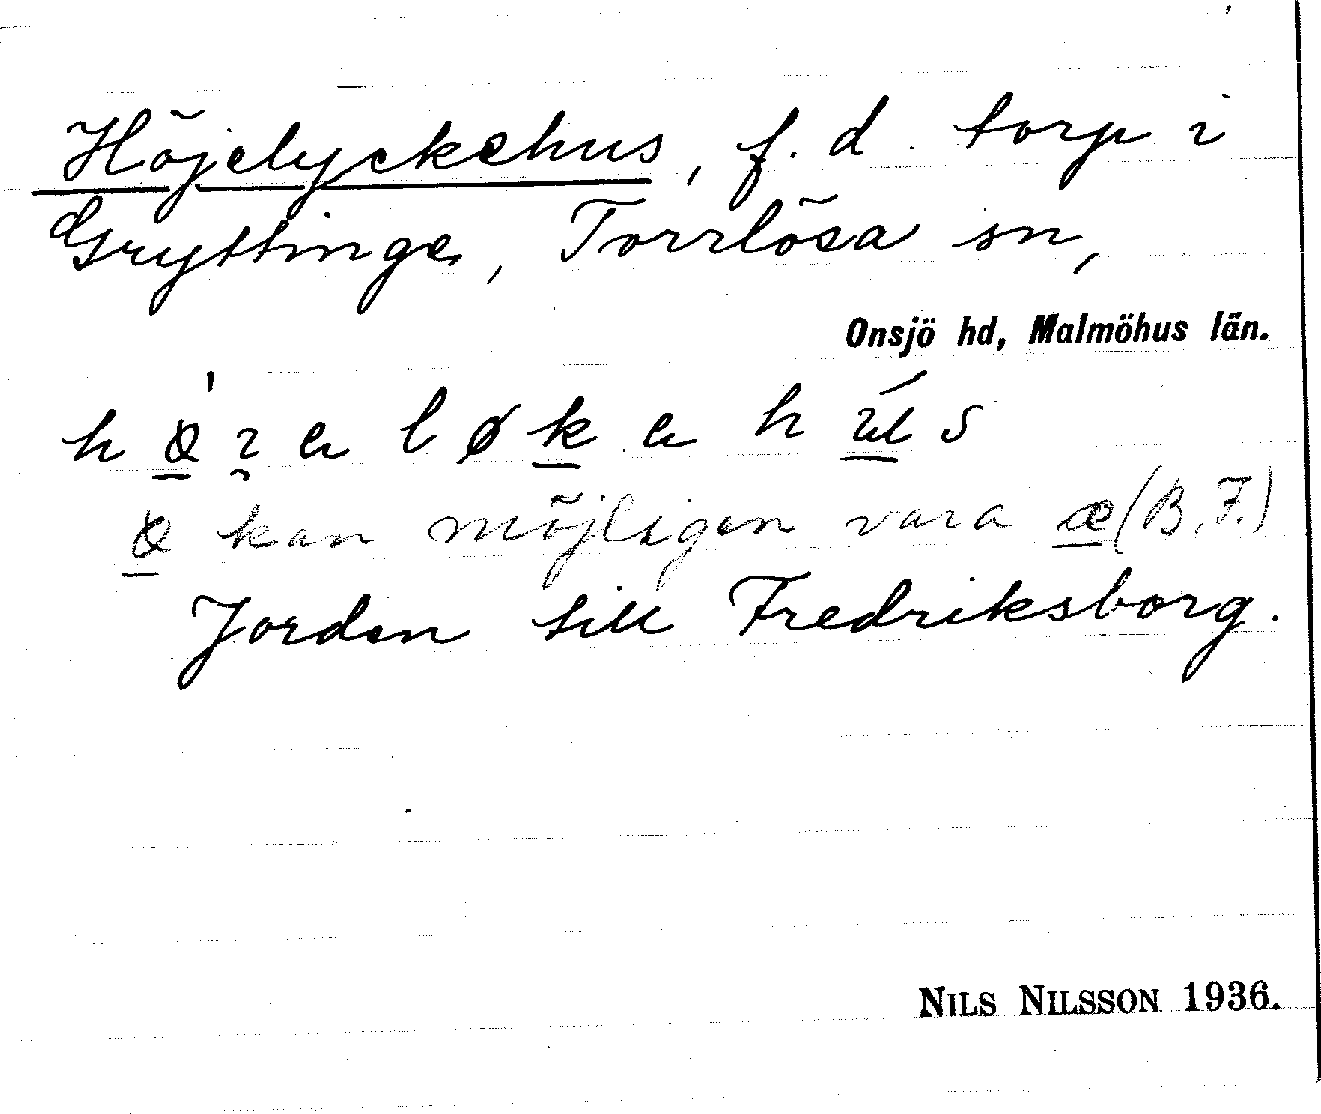 Höjelyckehus, f. d. torp i
Gryttinge, Torrlösa sn,
Onsjö hd, Malmöhus län.
kan möjligen vara æ (B. F.)
Jorden till Fredriksborg.
NILS NILSSON 1936.